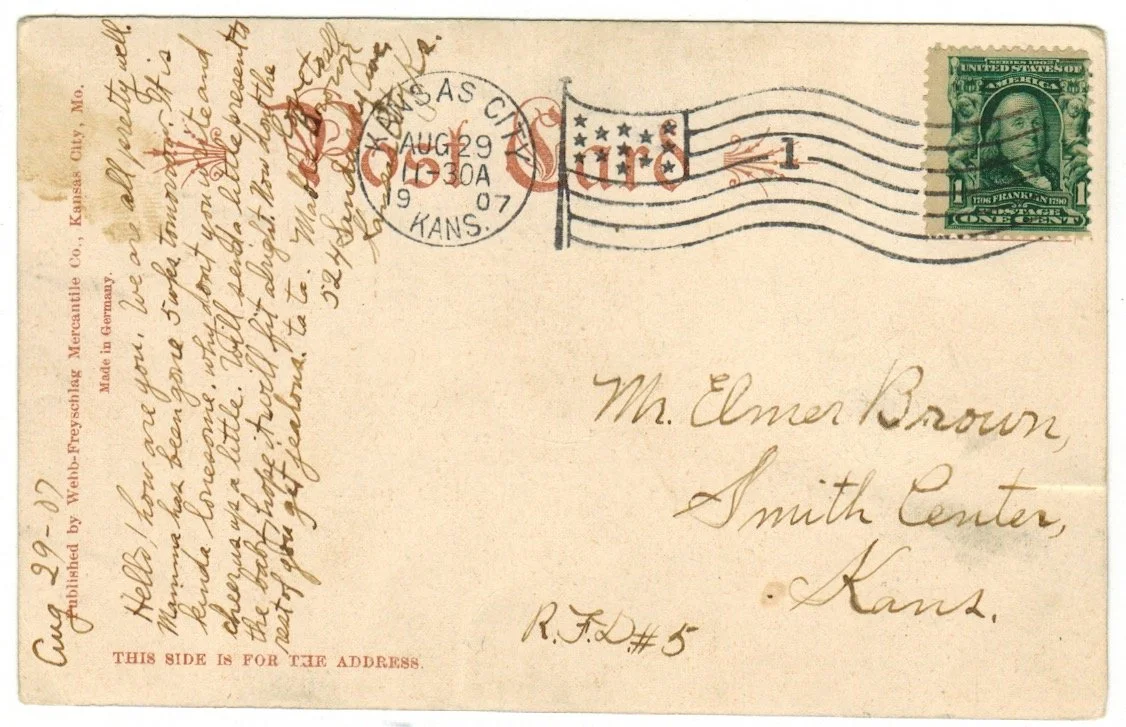 Aug 29-07
Published by Webb-Freyschlag Mercantile Co., Kansas City, Mo.
Made in Germany.
Hello! how are you. We are all pretty well.
Mamma has been gone 5 wks tomorrow. It is
kinda lonesome. why dont you write and
cheer us up a little. Will send a little present to
the baby, hope it will fit alright. Now dont the
rest of you get jealous. ta ta.
524 Sandusky Ave.
Ka.
Post Card
KANSAS CITY
AUG 29
11-30A
1907
KANS.
1
SERIES 1902
UNITED STATES OF
AMERICA
1 1
1706 FRANKLIN 1790
POSTAGE
ONE CENT
Mr. Elmer Brown,
Smith Center,
Kans.
R.F.D. #5
THIS SIDE IS FOR THE ADDRESS.